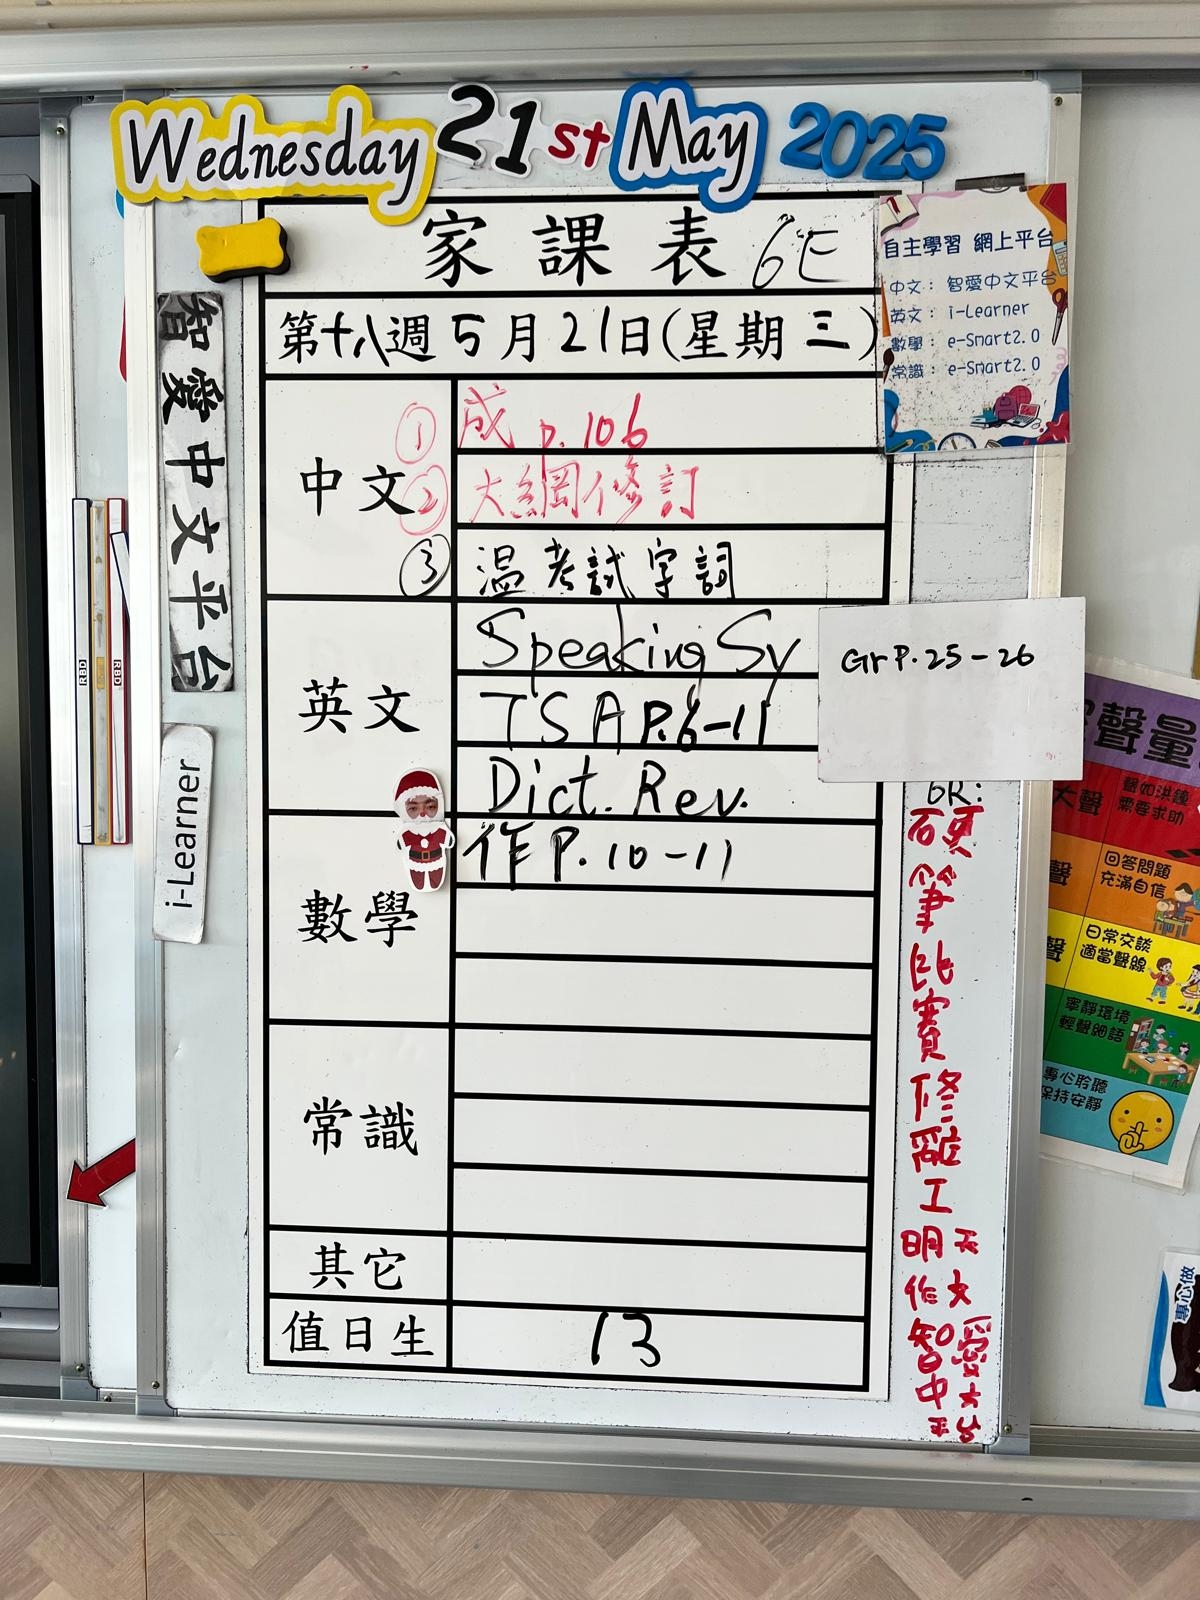 Wednesday 21st May 2025
家課表 6E
第十八週5月21日(星期三)
自主學習 網上平台
中文： 智愛中文平台
英文： i-Learner
數學： e-Smart2.0
常識： e-Smart2.0
智愛中文平台
i-Learner
中文
① 成 p.106
② 大綱修訂
③ 温考試字詞
英文
Speaking Sy
TSA P.6-11
Dict. Rev.
Gr P.25-26
數學
作 P.10-11
常識
其它
值日生
13
硬筆比賽
工
明天
作文
智愛
中文
平台
RBD
RBD
聲量
大聲
聲如洪鐘
需要求助
聲
回答問題
充滿自信
聲
日常交談
適當聲線
寧靜環境
輕聲細語
專心聆聽
保持安靜
專心做